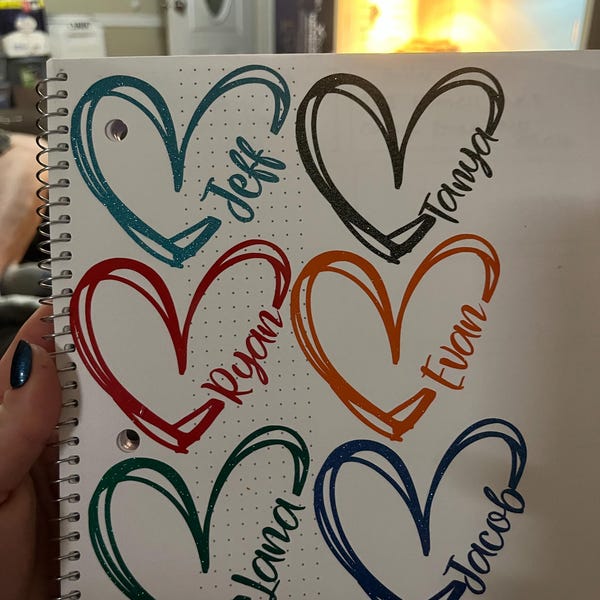 Jeff
Tanya
Ryan
Evan
Lana
Jacob